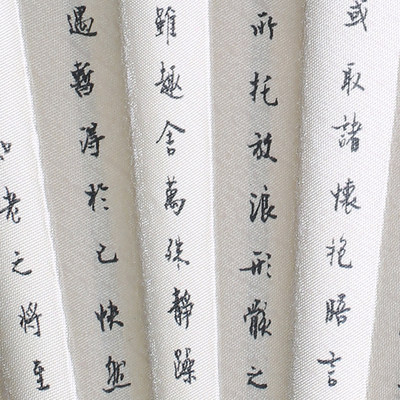 或取諸懷抱晤言
所托放浪形骸之
雖趣舍萬殊靜躁
遇暫得於己快然
知老之將至